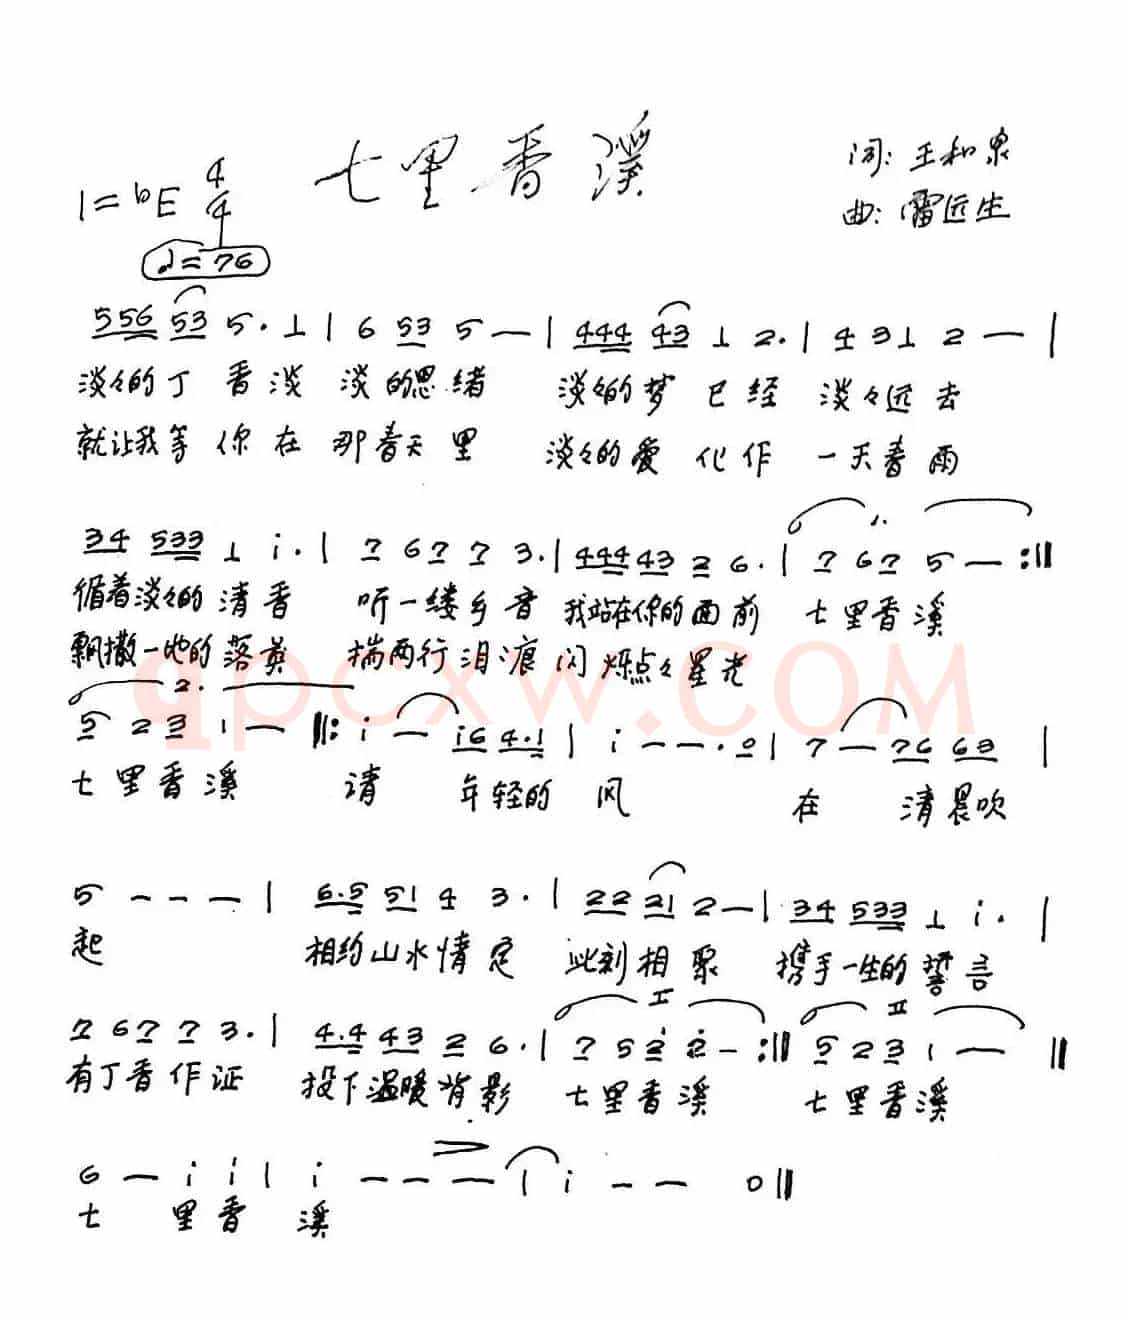 七里香溪
词: 王和泉
1=♭E 4/4
曲: 雷远生
♩=76
556 53 5. 1 | 6 53 5 — | 444 43 1 2. | 4 3 1 2 — |
淡々的丁 香淡 淡的思绪 淡々的梦 已经 淡々远去
就让我等 你在 那春天里 淡々的爱 化作 一天春雨
1.
34 533 1 i. | 7 67 7 3. | 444 43 2 6. | 7 67 5 — :||
循着淡々的 清香 听一缕乡音 我站在你的面前 七里香溪
飘撒一地的 落英 揣两行泪痕 闪烁点々星光
qpcxw.COM
2.
5 2 3 1 — ||: i — i6 4.1 | i — — . 0 | 7 — 76 63 |
七里香溪 请 年轻的 风 在 清晨吹
5 — — — | 6.5 51 4 3. | 22 21 2 — | 34 533 1 i. |
起 相约山水情 定 此刻相聚 携手一生的 誓言
I II
7 67 7 3. | 4.4 43 2 6. | 7 5 2̇ 2̇ — :|| 5 2 3 1 — ||
有丁香作证 投下温暖背影 七里香溪 七里香溪
6 — i i | i — — — | i — — 0 ||
七 里香 溪